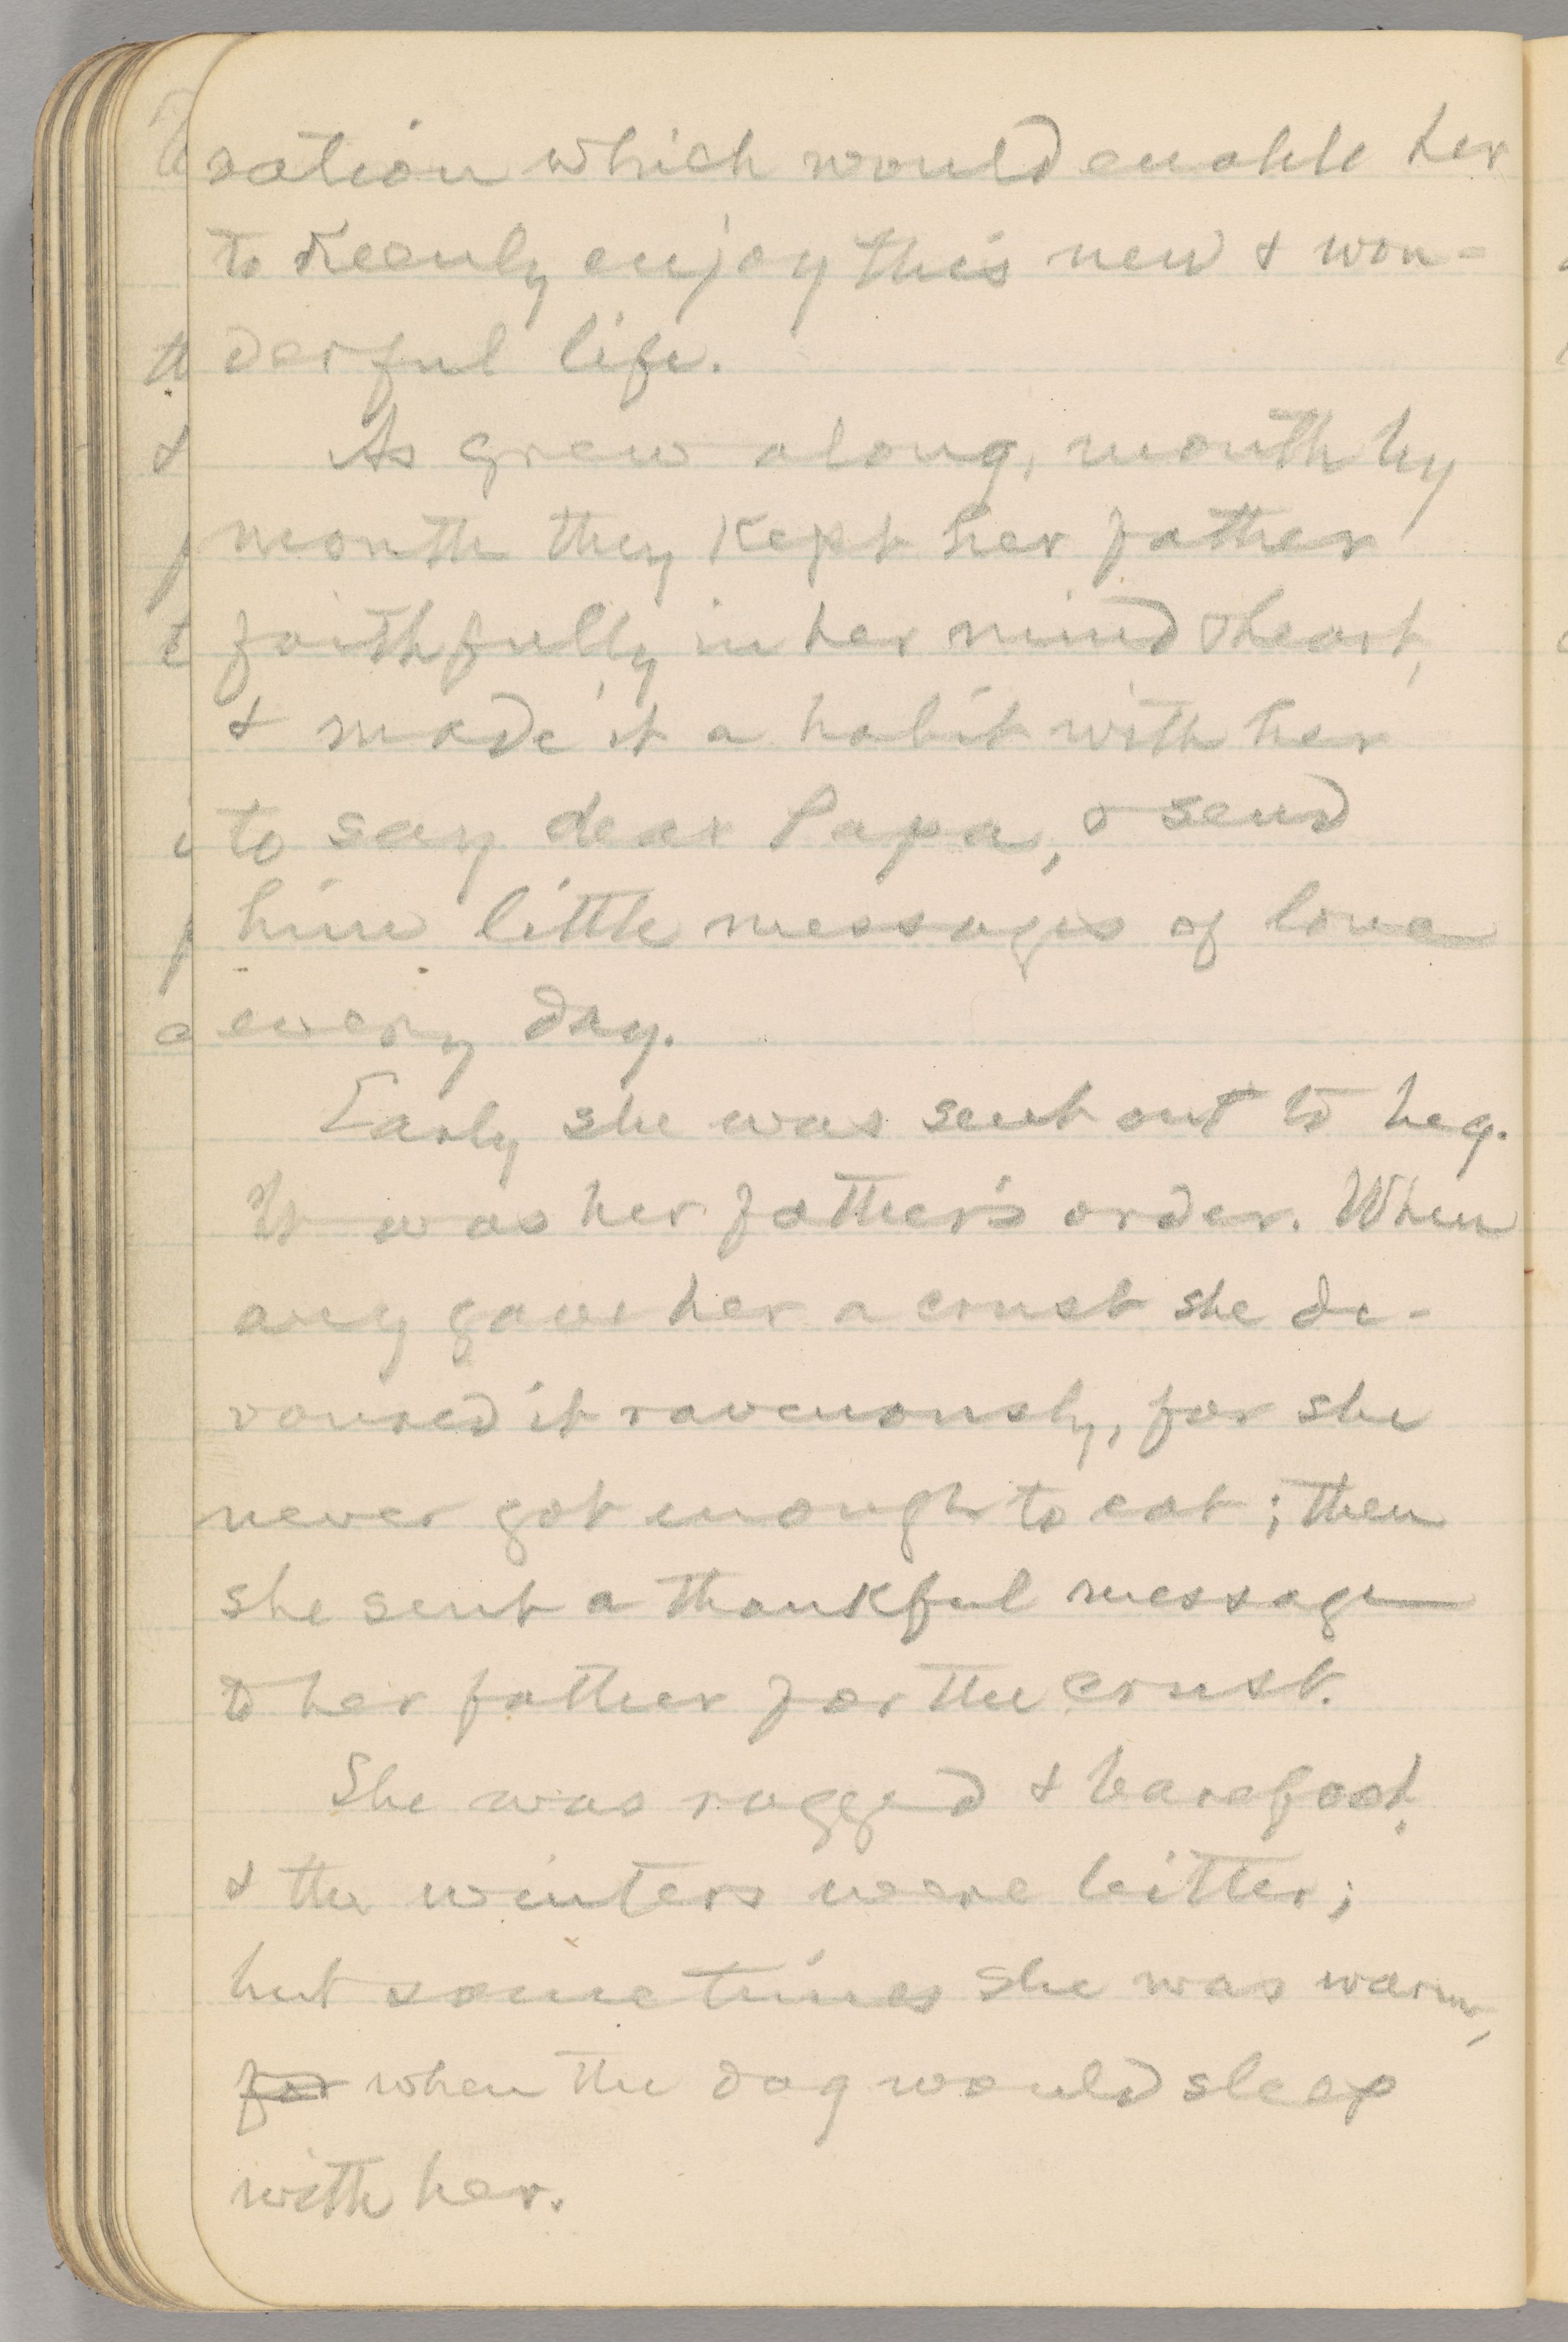 ration which would enable her
to keenly enjoy this new & won-
derful life.
As grew along, month by
month they kept her father
faithfully in her mind & heart,
& made it a habit with her
to say dear Papa, & send
him little messages of love
every day.
Early she was sent out to beg.
It was her father's order. When
any gave her a crust she de-
voured it ravenously, for she
never got enough to eat; then
she sent a thankful message
to her father for the crust.
She was ragged & barefoot,
& the winters were bitter;
but sometimes she was warm,
for when the dog would sleep
with her.